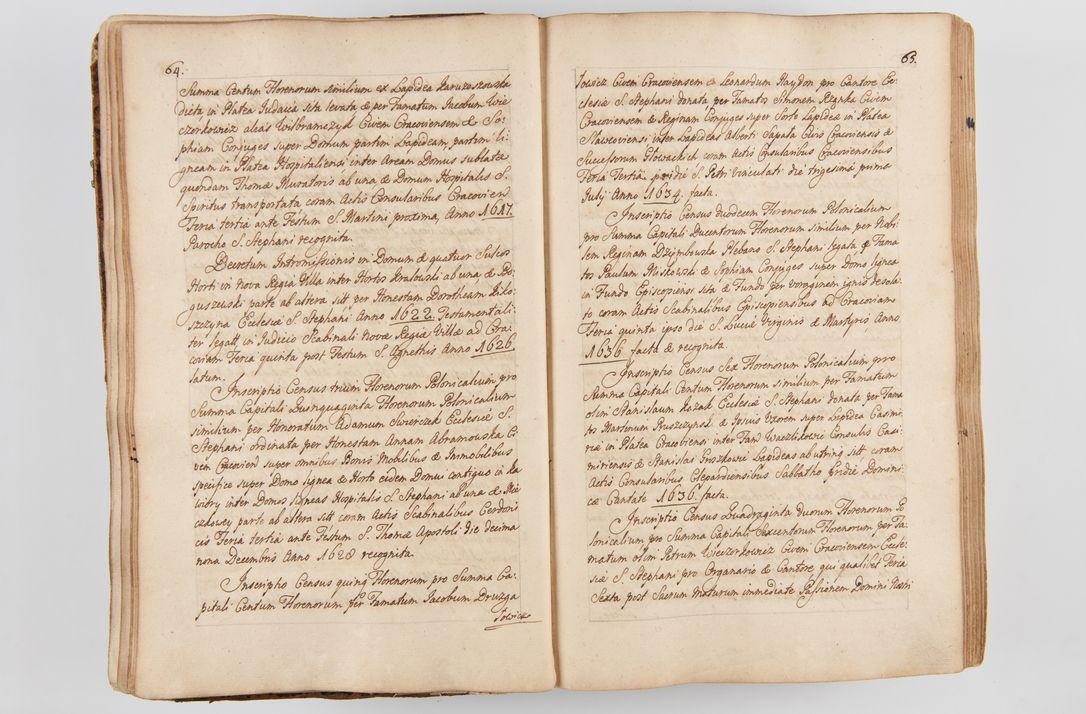 64.
Summa Centum Florenorum similium ex Lapidea Karuzoszowska
dicta in Platea Judaica sita levata & per Famatum Jacobum Wie
czorkowicz alias Wilbramczyk Civem Cracoviensem & So-
phiam Conjuges super Domum partim Lapideam, partim li-
gneam in Platea Hospitaliensi inter Aream Domus sublatæ
quondam Thomæ Muratoris ab una & Domum Hospitalis S.
Spiritus transportata coram Actis Consularibus Cracovien:
Feria tertia ante Festum S. Martini proxima, Anno 1617.
Parocho S. Stephani recognita.
Decretum Intromissionis in Domum & quatuor Sulcos
Horti in Nova Regia Villa inter Hortos Kralowski ab una & Bo-
guszewski parte ab altera sitt per Honestam Dorotheam Kislo-
szczyna Ecclesiæ S. Stephani Anno 1622. Testamentali-
ter legatt, in Judicio Scabinali Novæ Regiæ Villæ ad Cra-
coviam Feria quinta post Festum S. Agnethis Anno 1626.
latum.
Inscriptio Census trium Florenorum Polonicalium pro
Summa Capitali Quinquaginta Florenorum Polonicalium
similium per Honoratum Adamum Swierczek Ecclesiæ S.
Stephani ordinata per Honestam Annam Abramowska Ci
vem Cracovien super omnibus Bonis Mobilibus & Immobilibus
specifice super Domo lignea & Horto eidem Domui contiguo in Ka
wiory inter Domos ligneas Hospitalis S. Stephani ab una & Mie
czdowey parte ab altera sitt coram Actis Scabinalibus Cerdoni
cis Feria tertia ante Festum S. Thomæ Apostoli die decima
nona Decembris Anno 1628 recognita.
Inscriptio Census quinq Florenorum pro Summa Ca-
pitali Centum Florenorum per Famatum Jacobum Druzga
Jowicz
65.
Jowicz Civem Cracoviensem & Leonardum Haydon pro Cantore Ec
clesiæ S. Stephani donata per Famatos Simonem Reginka Civem
Cracoviensem & Reginam Conjuges super Sorte Lapideæ in Platea
Slavcoviensi inter Lapideas Alberti Sapata Civis Cracoviensis &
Sucessorum Glowackich coram Actis Consularibus Cracoviensibus
Feria Tertia pridie S. Petri vinculati die trigesima prima
Julij Anno 1634. facta.
Inscriptio Census duodecim Florenorum Polonicalium
pro Summa Capitali Ducentorum Florenorum similium per Nobi-
lem Reginam Dzijmbuska Plebano S. Stephani legata & Fama
tos Paulum Miskowski & Sophiam Conjuges super Domo lignea
in Fundo Episcopiensi sita & Fundo per voraginem ignis desola-
to coram Actis Scabinalibus Episcopiensibus ad Cracoviam
Feria quinta ipso die S. Luciæ Virginis & Martyris Anno
1636. facta & recognita.
Inscriptio Census Sex Florenorum Polonicalium pro
Summa Capitali Centum Florenorum similium per Famatum
olim Stanislaum Kazak Ecclesiæ S. Stephani donata per Fama
tos Martinum Pruszczynski & ipsius Uxorem super Lapidea Casimi
riæ in Platea Cracobiensi inter Fam Waczlikowic Consulis Casi
miriensis & Stanislai Proszkowic Lapideas ab utrinq sitt coram
Actis Consularibus Clepardiensibus Sabbatho Pridie Domini
cæ Cantate 1636. facta.
Inscriptio Census Quadraginta duorum Florenorum Po
lonicalium pro Summa Capitali Sexcentorum Florenorum per Fa-
matum olim Petrum Wieczorkowicz Civem Cracoviensem Eccle-
siæ S. Stephani pro Organario & Cantore qui qualibet Feria
Sexta post Sacrum Maturum immediate Passionem Domini Nostri